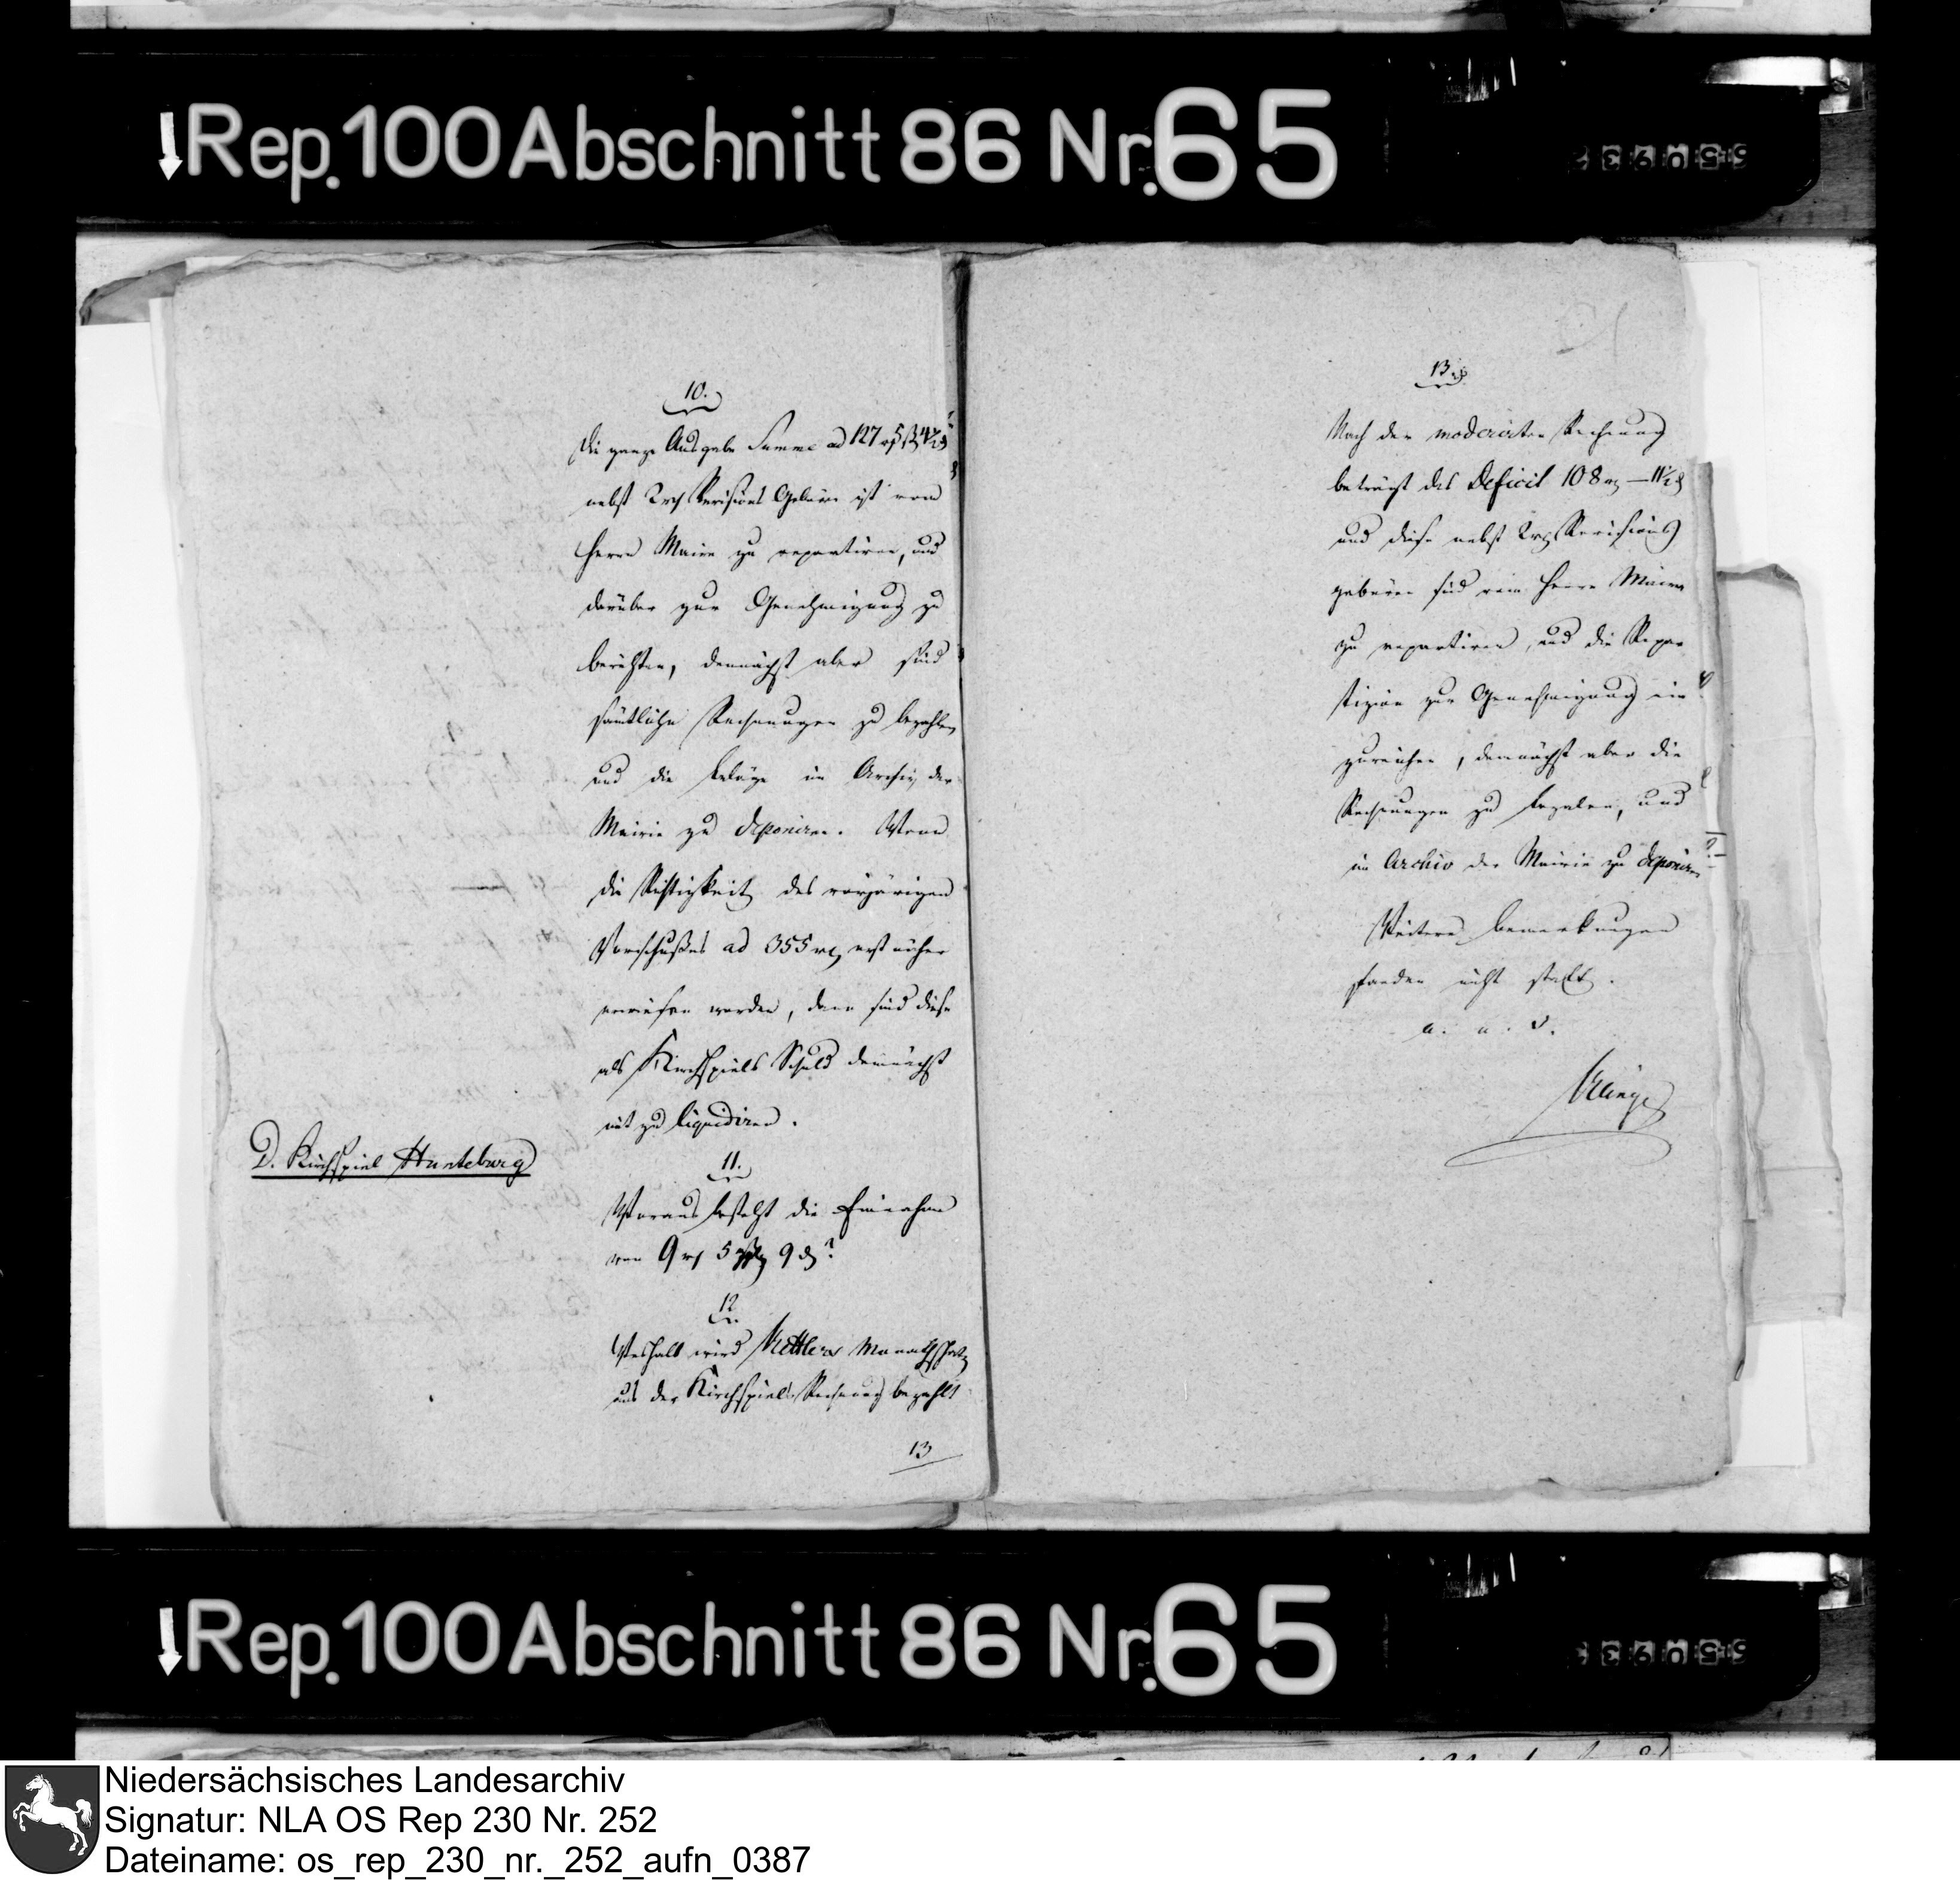 Rep. 100 Abschnitt 86 Nr. 65
10.
Die ganze Ausgabe Summe ad 127
nebst 2 rt Revisions Gebüren ist von
Herrn Maire zu repartiren, und
darüber zur Genehmigung zu
berichten, demnächst aber sind
sämtliche Rechnungen zu bezahlen
und die Beläge im Archiv der
Mairie zu deponiren. Wenn
die Richtigkeit des vorjärigen
Vorschußes ad 355 rt erst näher
erwiesen worden, dann sind diese
als Kirchspiels Schuld demnächst
mit zu liquidiren.
D. Kirchspiel Hunteburg
11.
Woraus besteht die Einnahme
von 9 rt 5 9 d?
12.
Weshalb wird Mettlers
aus der Kirchspiels Rechnung bezahlt
13
13.
Nach der moderirten Rechnung
beträgt das Deficit 108 rt — 11½ d
und diese nebst 2 rt Revisions
gebüren sind vom Herrn Maire
zu repartiren, und die Repar
tizion zur Genehmigung ein
zureichen, demnächst aber die
Rechnungen zu bezalen, und
im Archiv der Mairie zu deponiren
Weitere Bemerkungen
fanden nicht statt.
a. u. s.
Rep. 100 Abschnitt 86 Nr. 65
Niedersächsisches Landesarchiv
Signatur: NLA OS Rep 230 Nr. 252
Dateiname: os_rep_230_nr._252_aufn_0387